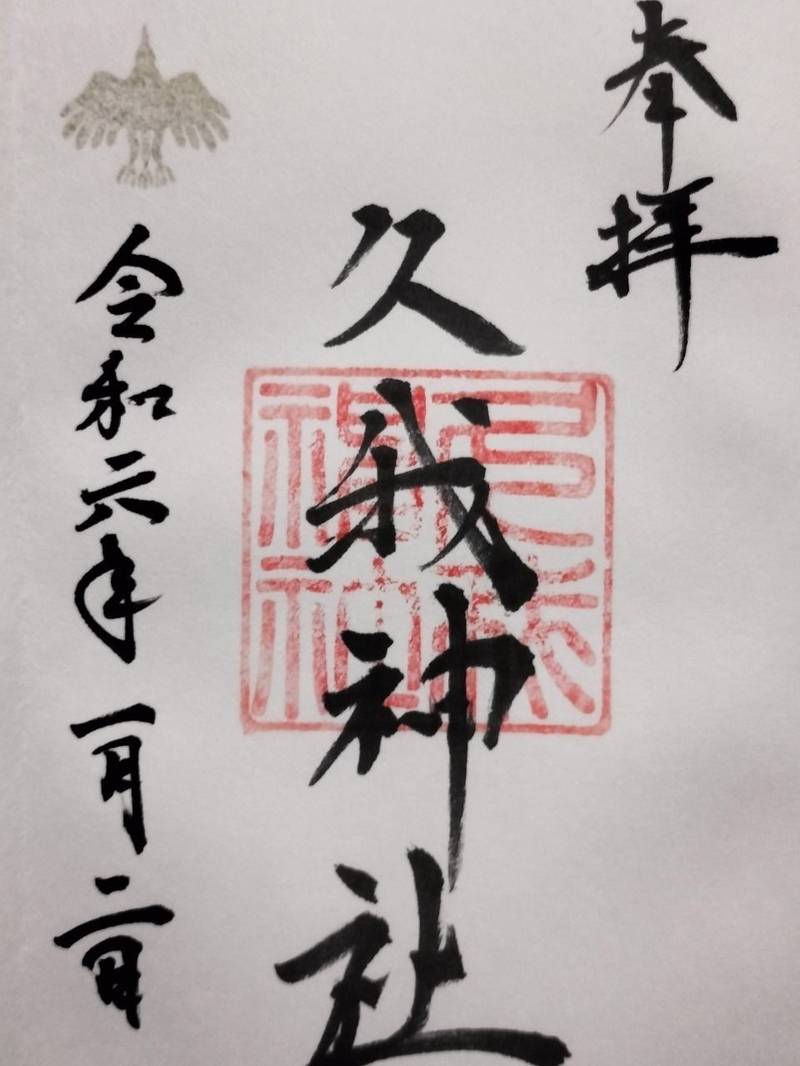 奉拝
久我神社
令和六年一月二日